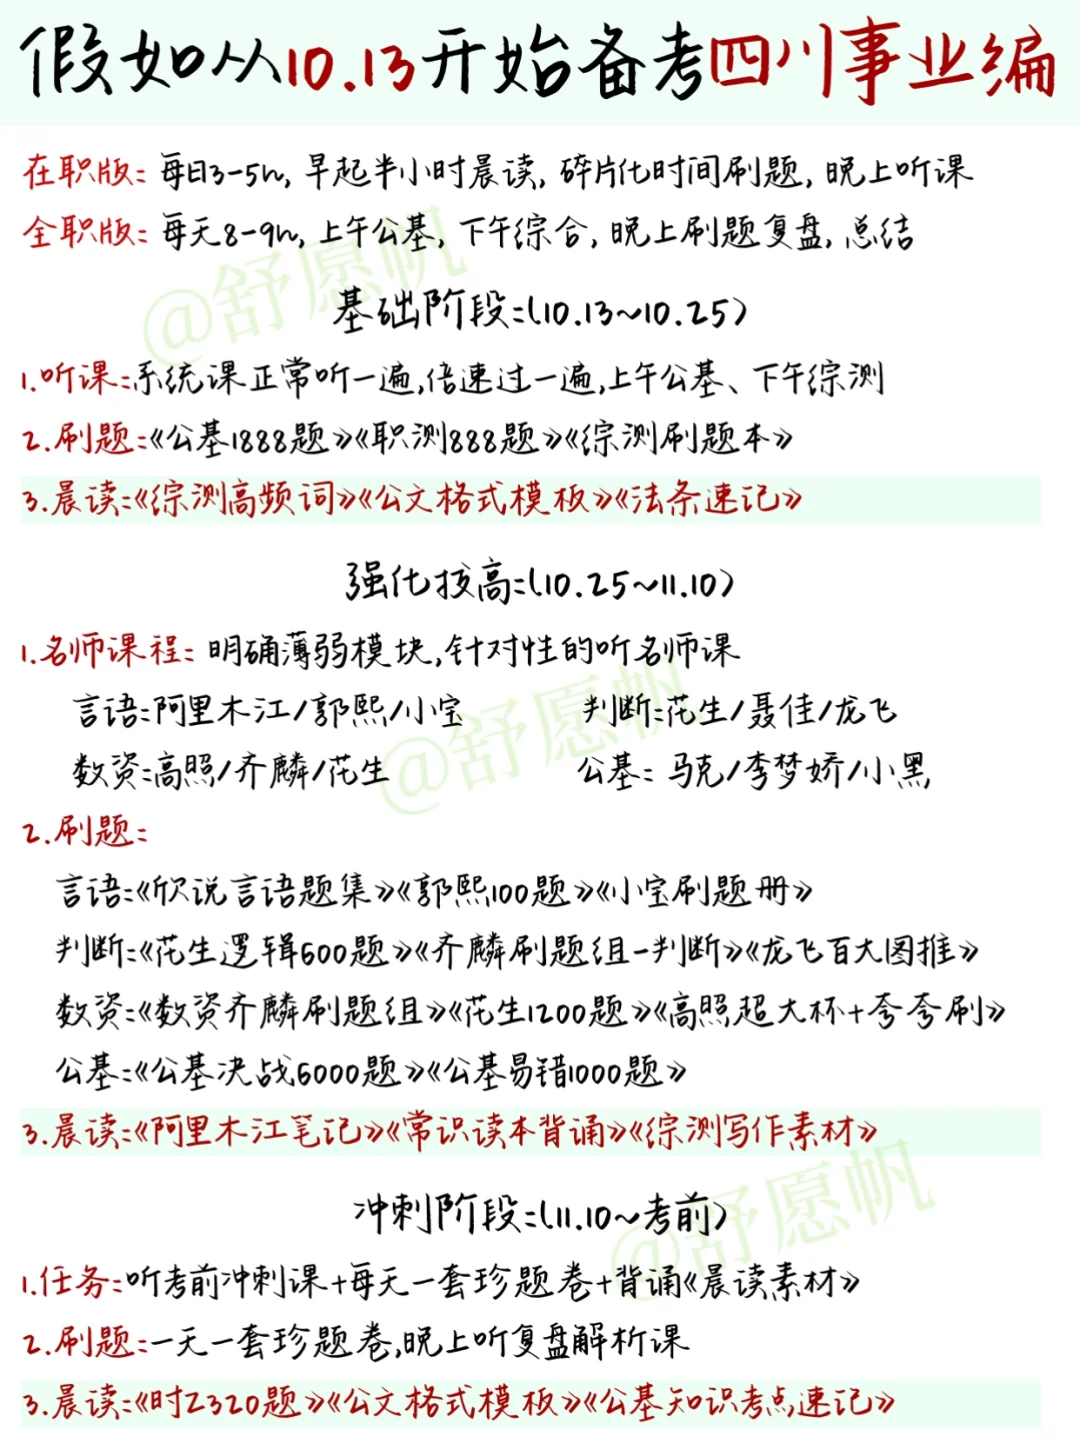 假如从10.13开始备考四川事业编
在职版:每日3-5h,早起半小时晨读,碎片化时间刷题,晚上听课
全职版:每天8-9h,上午公基,下午综合,晚上刷题复盘,总结
@舒愿帆
基础阶段:(10.13~10.25)
1.听课:系统课正常听一遍,倍速过一遍,上午公基、下午综测
2.刷题:《公基1888题》《职测888题》《综测刷题本》
3.晨读:《综测高频词》《公文格式模板》《法条速记》
强化拔高:(10.25~11.10)
1.名师课程:明确薄弱模块,针对性的听名师课
言语:阿里木江/郭熙/小宝 判断:花生/聂佳/龙飞
@舒愿帆
数资:高照/齐麟/花生 公基:马克/李梦娇/小黑
2.刷题:
言语:《欣说言语题集》《郭熙100题》《小宝刷题册》
判断:《花生逻辑600题》《齐麟刷题组-判断》《龙飞百大图推》
数资:《数资齐麟刷题组》《花生1200题》《高照超大杯+夸夸刷》
公基:《公基决战6000题》《公基易错1000题》
3.晨读:《阿里木江笔记》《常识读本背诵》《综测写作素材》
冲刺阶段:(11.10~考前)
@舒愿帆
1.任务:听考前冲刺课+每天一套珍题卷+背诵《晨读素材》
2.刷题:一天一套珍题卷,晚上听复盘解析课
3.晨读:《时Z320题》《公文格式模板》《公基知识考点速记》